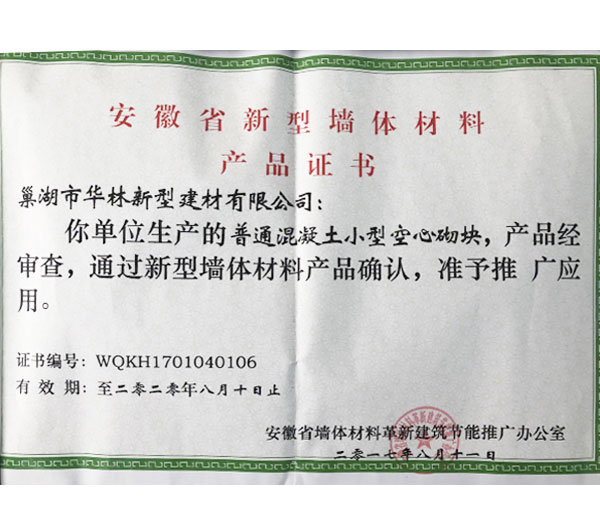 安徽省新型墙体材料
产品证书
巢湖市华林新型建材有限公司：
你单位生产的普通混凝土小型空心砌块，产品经
审查，通过新型墙体材料产品确认，准予推 广应
用。
证书编号：WQKH1701040106
有 效 期：至二〇二〇年八月十日止
安徽省墙体材料革新建筑节能推广办公室
二〇一七年八月十一日